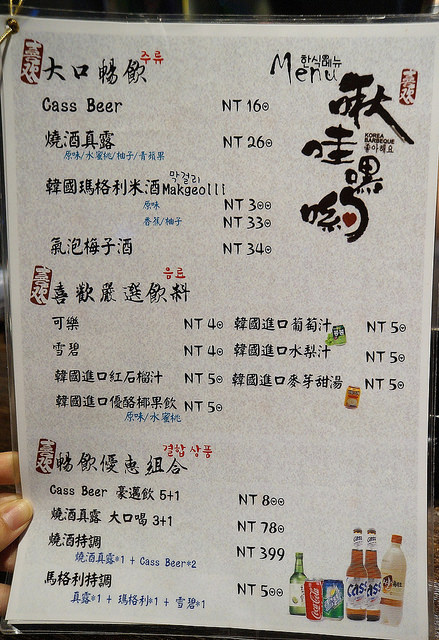 喜歡
大口暢飲 주류
한식메뉴
Menu
喜歡
啾哇嘿喲
KOREA
BARBEQUE
좋아해요
Cass Beer NT 160
燒酒真露 NT 260
原味/水蜜桃/柚子/青蘋果
막걸리
韓國瑪格利米酒Makgeolli
原味 NT 300
香蕉/柚子 NT 330
氣泡梅子酒 NT 340
喜歡
음료
喜歡嚴選飲料
可樂 NT 40 韓國進口葡萄汁 NT 50
雪碧 NT 40 韓國進口水梨汁 NT 50
韓國進口紅石榴汁 NT 50 韓國進口麥芽甜湯 NT 50
韓國進口優酪椰果飲 NT 50
原味/水蜜桃
喜歡
결합 상품
暢飲優惠組合
Cass Beer 豪邁飲 5+1 NT 800
燒酒真露 大口喝 3+1 NT 780
燒酒特調 NT 399
燒酒真露*1 + Cass Beer*2
馬格利特調 NT 500
真露*1 + 瑪格利*1 + 雪碧*1
Coca-Cola
Cass
Cass